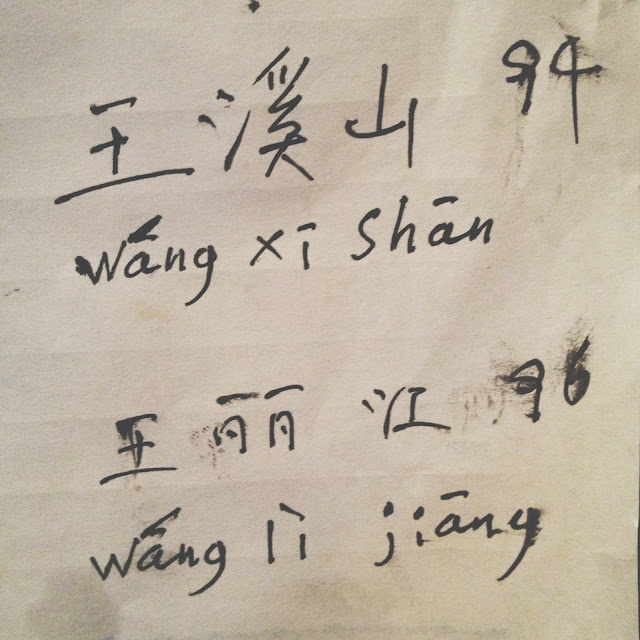 王溪山 94
wáng xī shān
王丽江 96
wáng lì jiāng